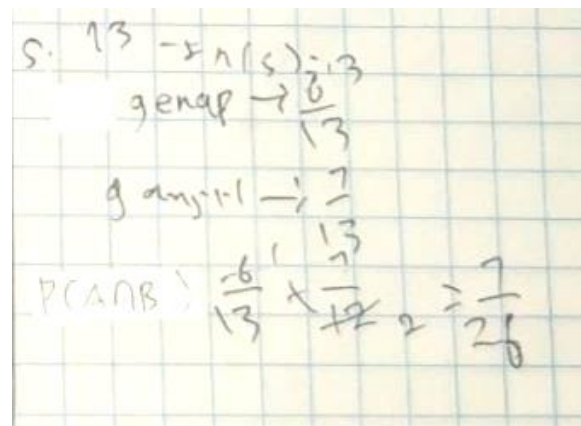 5. 13 → n(s) = 13
genap → 6/13
ganjil → 7/13
P(A∩B) 6/13 × 7/12 = 7/26